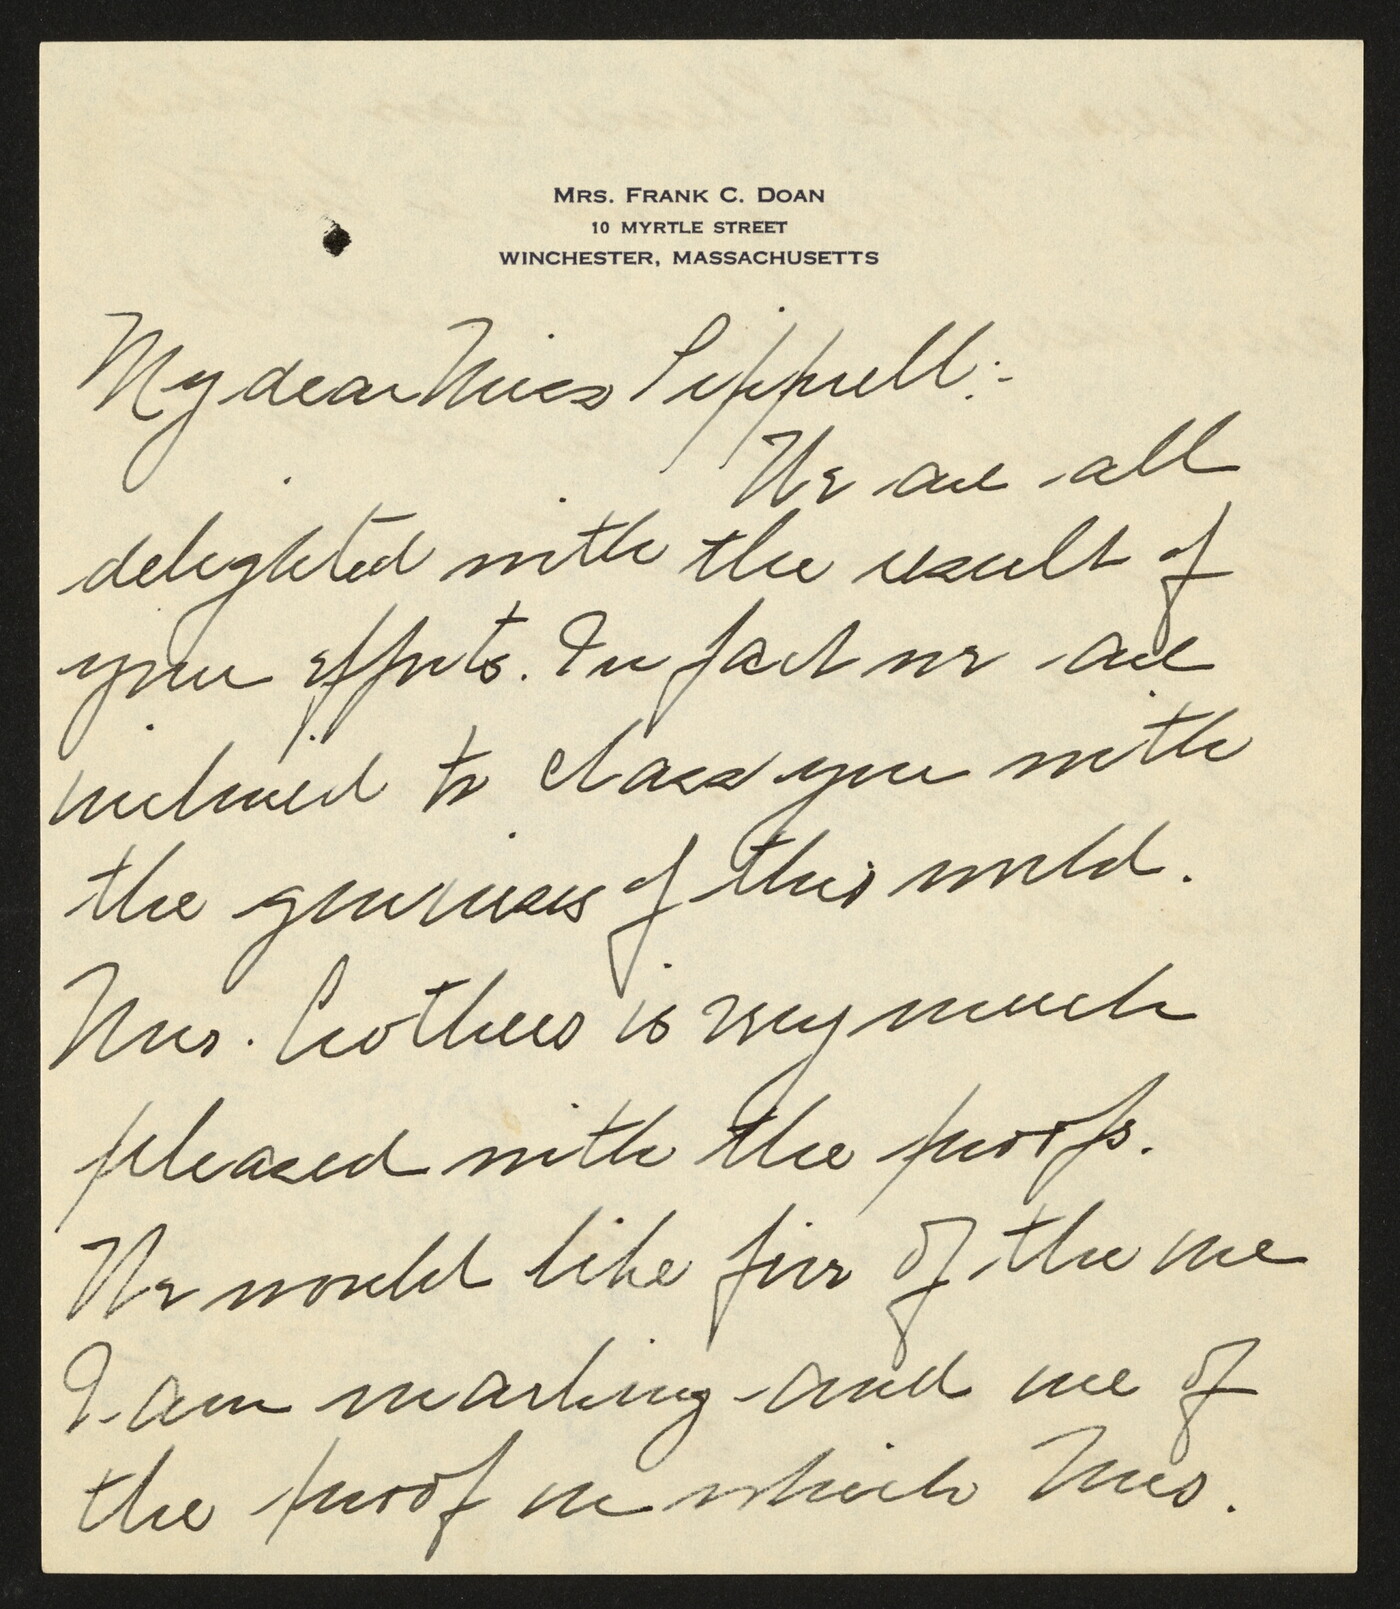 MRS. FRANK C. DOAN
10 MYRTLE STREET
WINCHESTER, MASSACHUSETTS
My dear Miss Pipprell:-
We are all
delighted with the result of
your efforts. In fact we are
inclined to class you with
the geniuses of this world.
Mrs. Crothers is very much
pleased with the proofs.
We would like five of the one
I am marking and one of
the proof on which Mrs.